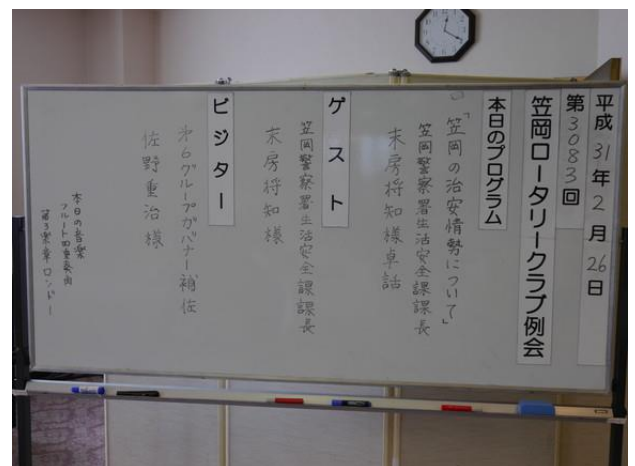 平成31年2月26日
第3083回
笠岡ロータリークラブ例会
本日のプログラム
「笠岡の治安情勢について」
笠岡警察署生活安全課課長
末房将知様卓話
ゲスト
笠岡警察署生活安全課課長
末房将知様
ビジター
第6グループガバナー補佐
佐野重治様
本日の音楽
フルート四重奏曲
第3楽章ロンドー